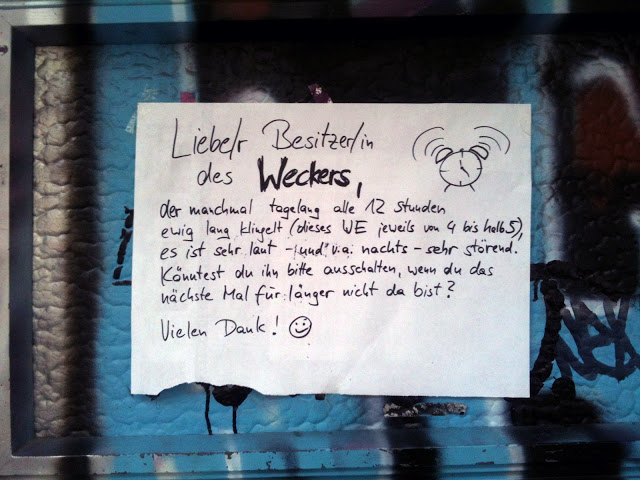 Liebe/r Besitzer/in
des Weckers,
der manchmal tagelang alle 12 Stunden
ewig lang klingelt (dieses WE jeweils von 4 bis halb 5),
es ist sehr laut - und v.a. nachts - sehr störend.
Könntest du ihn bitte ausschalten, wenn du das
nächste Mal für länger nicht da bist?
Vielen Dank! ☺